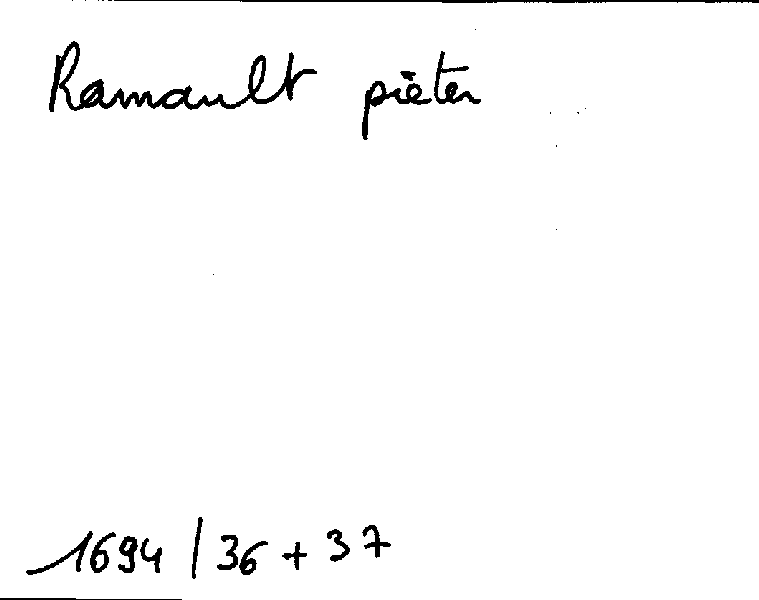 Ramault pieter
1694 / 36 + 37